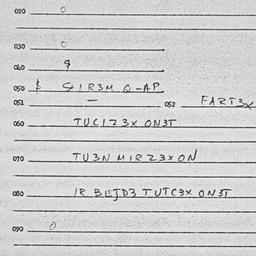 020 0
030 0
040 $
050 $ SIR3M Q-AP
051 — 052 FART3X
060 TUCIZ3X ON3T
070 TU3N MIRZ3XON
080 IR BEJD3 TUTC3X ON3T
090 0